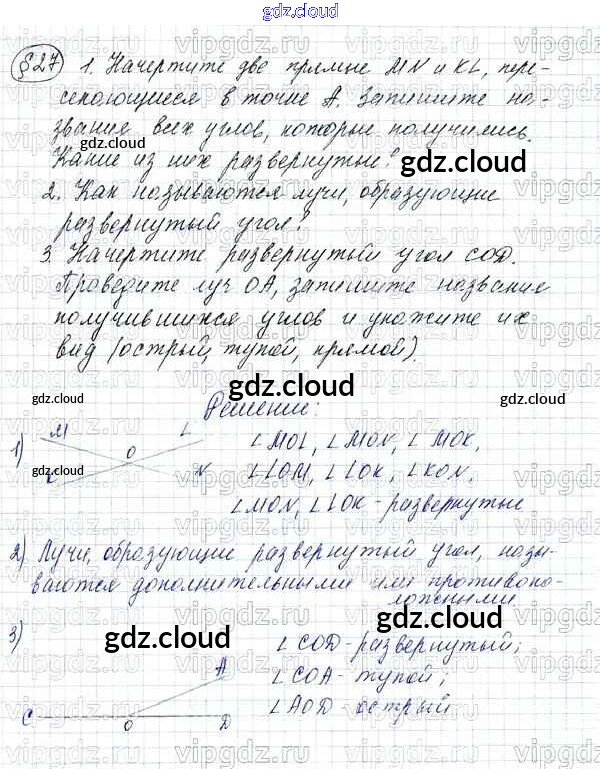 gdz.cloud
§27 1. Начертите две прямые MN и KL, пере-
секающиеся в точке A. Запишите на-
звания всех углов, которые получились.
Какие из них развернутые?
gdz.cloud
gdz.cloud
2. Как называются лучи, образующие
развернутый угол?
3. Начертите развернутый угол COD.
Проведите луч OA, запишите название
получившихся углов и укажите их
вид (острый, тупой, прямой).
gdz.cloud
gdz.cloud
gdz.cloud
Решение:
1) M L O K N
gdz.cloud
∠MOL, ∠MON, ∠MOK,
∠LOM, ∠LOK, ∠KON,
∠MON, ∠LOK - развернутые
gdz.cloud
2) Лучи, образующие развернутый угол, назы-
ваются дополнительными или противопо-
ложенными
3)
gdz.cloud
gdz.cloud
A
C O D
∠COD - развернутый;
∠COA - тупой;
∠AOD - острый
vipgdz.ru